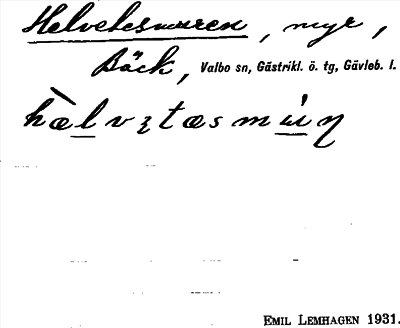 Helvetesmuren, myr,
Bäck, Valbo sn, Gästrikl. ö. tg, Gävleb. l.
EMIL LEMHAGEN 1931.